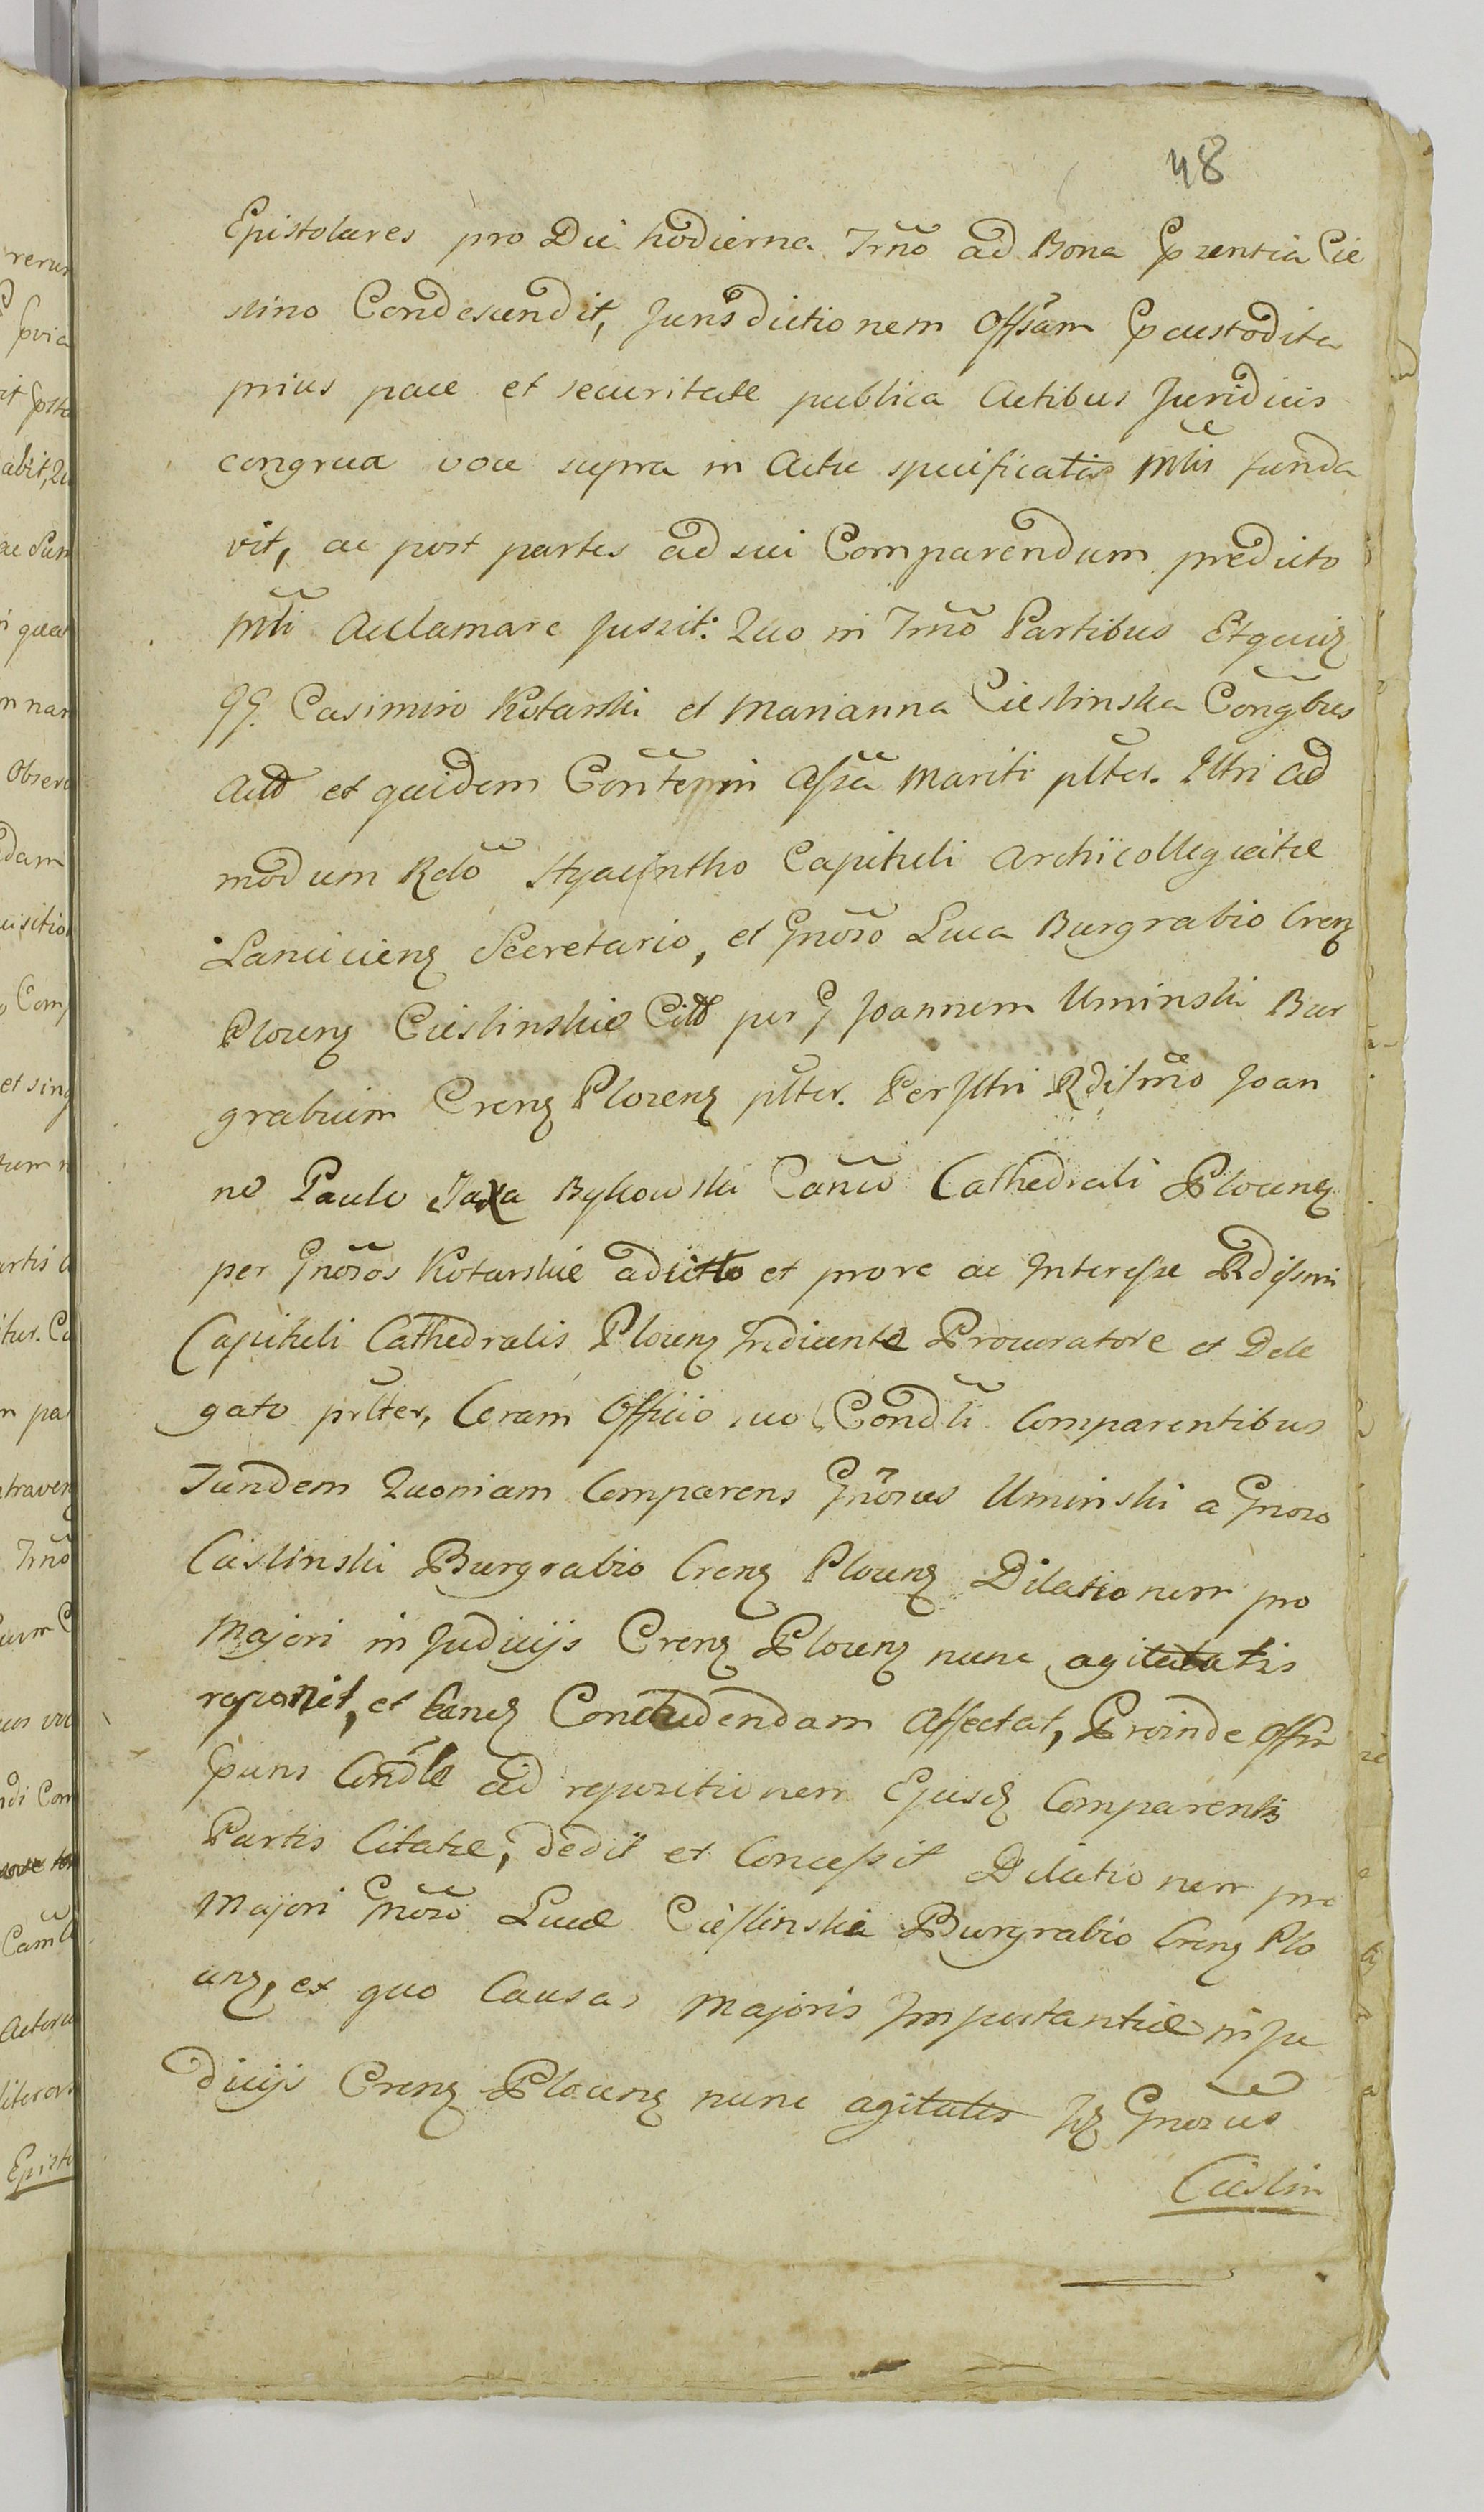 48
Epistolares pro Die hodierna Trno ad Bona pzentia Cie
slino Condescendit, Jurisdictionem Offsam pcustodita
prius pace et securitate publica Actibus Juridicis
congrua voce supra in Actu specificatis Mlis funda
vit, ac post partes ad sui Comparendum predicto
Mli Acclamare Jussit: Quo in Trno Partibus Etquidz
GG. Casimiro Kotarski et Marianna Cieslinska Congbus
Actt et quidem Contepin Assza Mariti plter. Illtri ad
modum Rdo Hyacyntho Capituli Archicollegiatae
Lanciciens Secretario, et Gnoso Luca Burgrabio Crenz
Plocenz Cieslinskie Citt per G Joannem Uminski Bur
grabium Crenz Plocenz plter. Perlltri Rdissmo Joan
ne Paulo Jaxa Bykowski Canco Cathedrali Plocenz
per Gnosos Kotarskie adcitto et prore ac Interesse Rdissmi
Capituli Cathedralis Plocenz Indicente Procuratore et Dele
gato prlter, Coram Officio suo Condli Comparentibus
Tandem Quoniam Comparens Gnosus Uminski a Gnoso
Cieslinski Burgrabio Crenz Plocenz Dilationem pro
Majori in Judicijs Crenz Plocenz nunc agitatis
reponit, et Concludendam Affectat, Proinde Offm
puns Condle ad repositionem Ejusd Comparentis
Partis Citatae, dedit et Concessit Dilationem pro
Majori Gnoso Lucae Cieslinski Burgrabio Crenz Plo
cenz, ex quo Causas Majoris Importantiae in Ju
dicijs Crenz Plocenz nunc agitatis hz Gnosus
Cieslin